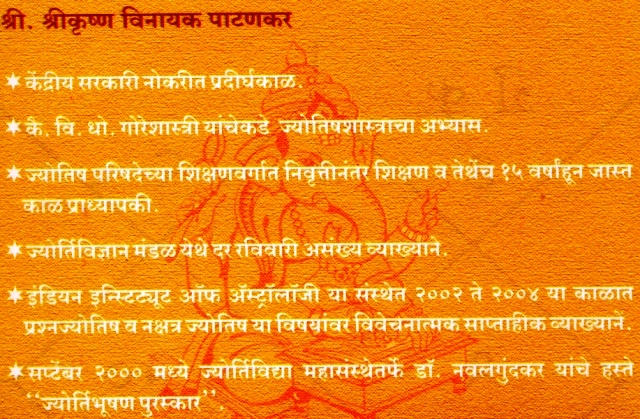 श्री. श्रीकृष्ण विनायक पाटणकर
✶ केंद्रीय सरकारी नोकरीत प्रदीर्घकाळ.
✶ कै. वि. धो. गोरेशास्त्री यांचेकडे ज्योतिषशास्त्राचा अभ्यास.
✶ ज्योतिष परिषदेच्या शिक्षणवर्गात निवृत्तीनंतर शिक्षण व तेथेंच १५ वर्षांहून जास्त
काळ प्राध्यापकी.
✶ ज्योर्तिविज्ञान मंडळ येथे दर रविवारी असंख्य व्याख्याने.
✶ इंडियन इन्स्टिट्यूट ऑफ ॲस्ट्रॉलॉजी या संस्थेत २००२ ते २००४ या काळात
प्रश्नज्योतिष व नक्षत्र ज्योतिष या विषयांवर विवेचनात्मक साप्ताहीक व्याख्यानें.
✶ सप्टेंबर २००० मध्ये ज्योर्तिविद्या महासंस्थेतर्फे डॉ. नवलगुंदकर यांचे हस्ते
‘‘ज्योर्तिभूषण पुरस्कार’’.